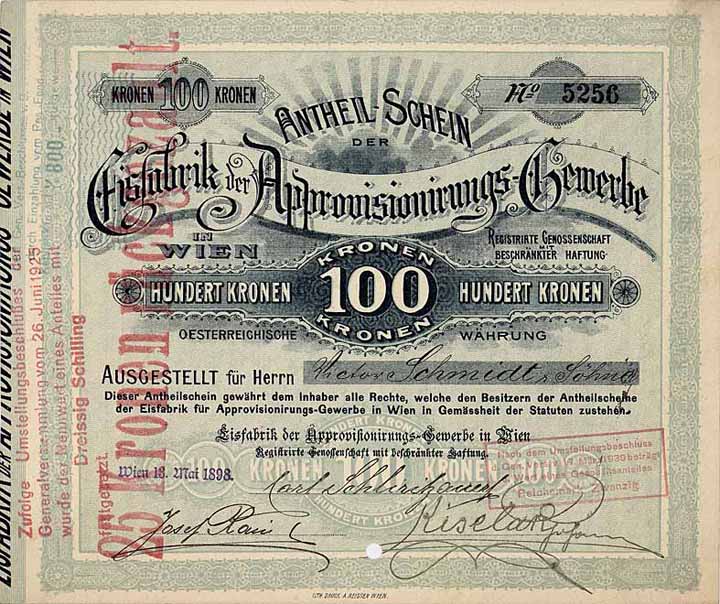 KRONEN 100 KRONEN
No 5256
ANTHEIL-SCHEIN
DER
Eisfabrik der Approvisionirungs-Gewerbe
IN
WIEN
REGISTRIRTE GENOSSENSCHAFT
MIT
BESCHRÄNKTER HAFTUNG
KRONEN
HUNDERT KRONEN 100 HUNDERT KRONEN
KRONEN
OESTERREICHISCHE WÄHRUNG
AUSGESTELLT für Herrn Victor Schmidt & Söhne
Dieser Antheilschein gewährt dem Inhaber alle Rechte, welche den Besitzern der Antheilscheine
der Eisfabrik für Approvisionirungs-Gewerbe in Wien in Gemässheit der Statuten zustehen.
Eisfabrik der Approvisionirungs-Gewerbe in Wien
Registrirte Genossenschaft mit beschränkter Haftung.
Wien 18. Mai 1898.
HUNDERT KRONEN
100
HUNDERT KRONEN
Josef
Nach dem Umstellungsbeschluss
1939 beträgt
Geschäftsanteiles
Reichsmark Zwanzig
Zufolge Umstellungsbeschlußes der
Generalversammlung vom 26 Juni 1925
wurde der Nennwert eines Anteiles mit
Dreissig Schilling
festgesetzt.
25 Kronen
800
EISFABRIK DER APPROVISIONIRUNGS GEWERBE IN WIEN